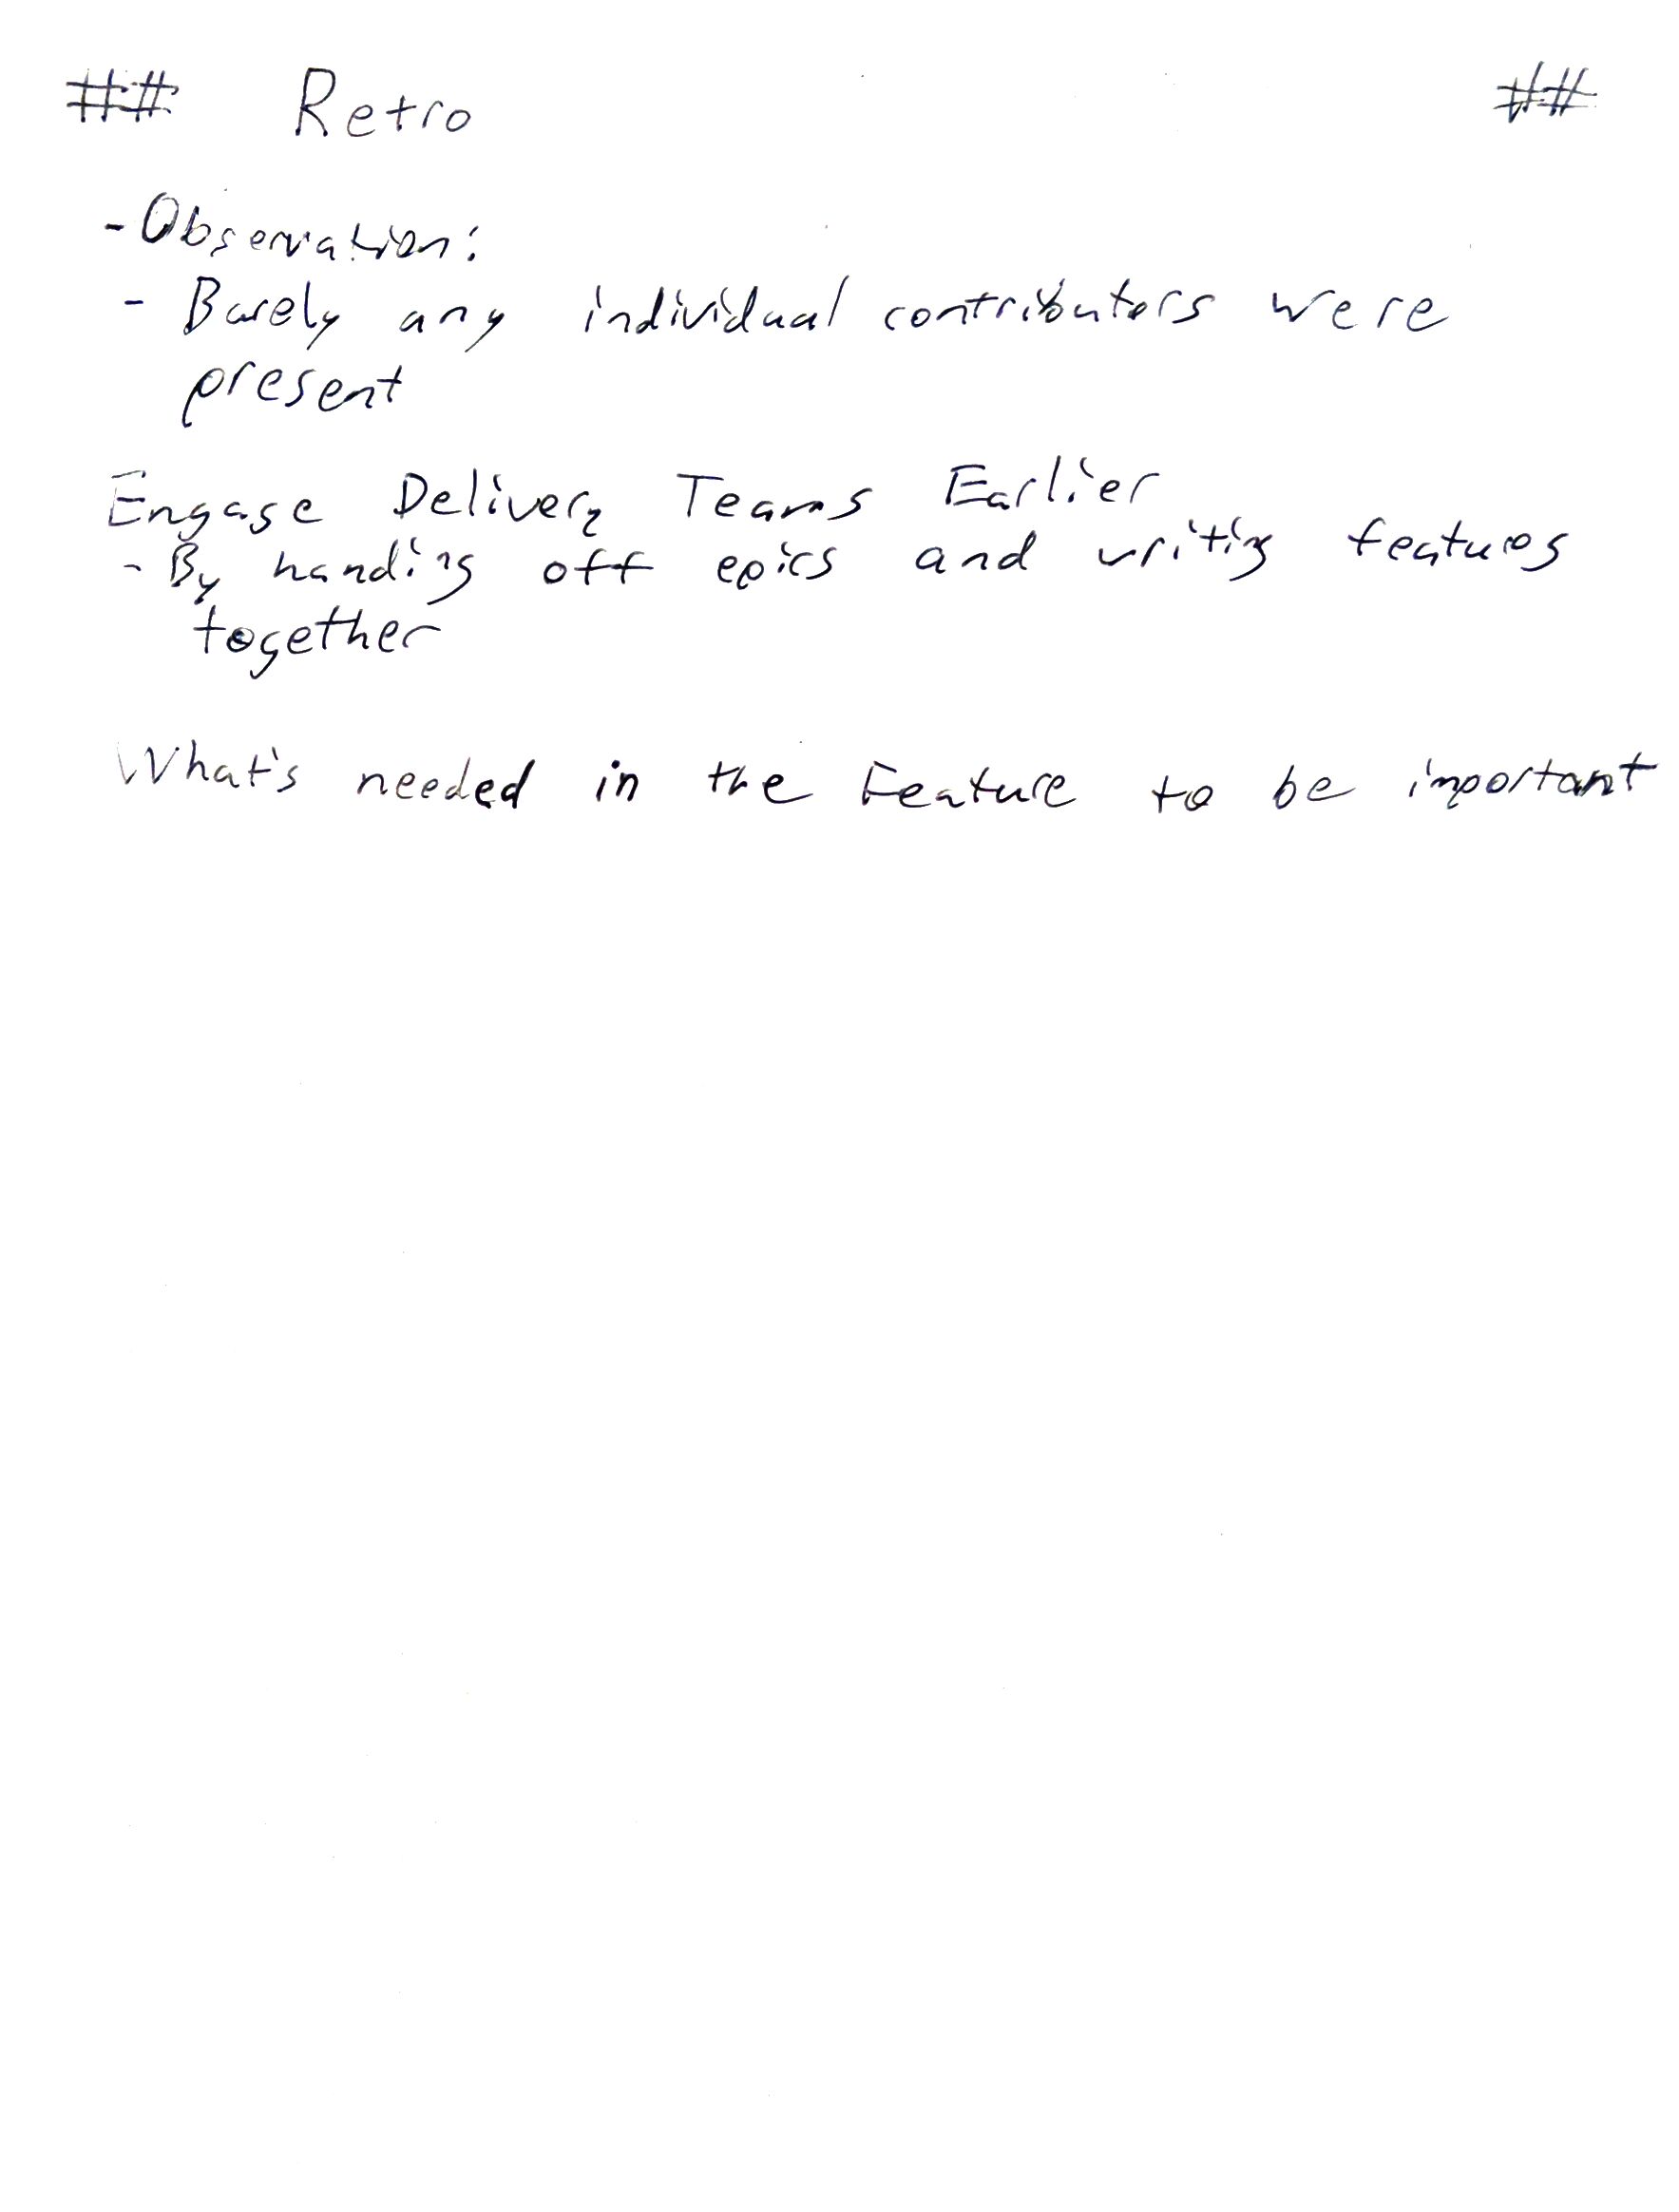 ## Retro ##
- Observation:
- Barely any individual contributors were
present
Engage Delivery Teams Earlier
- By handing off epics and writing features
together
What's needed in the Feature to be important